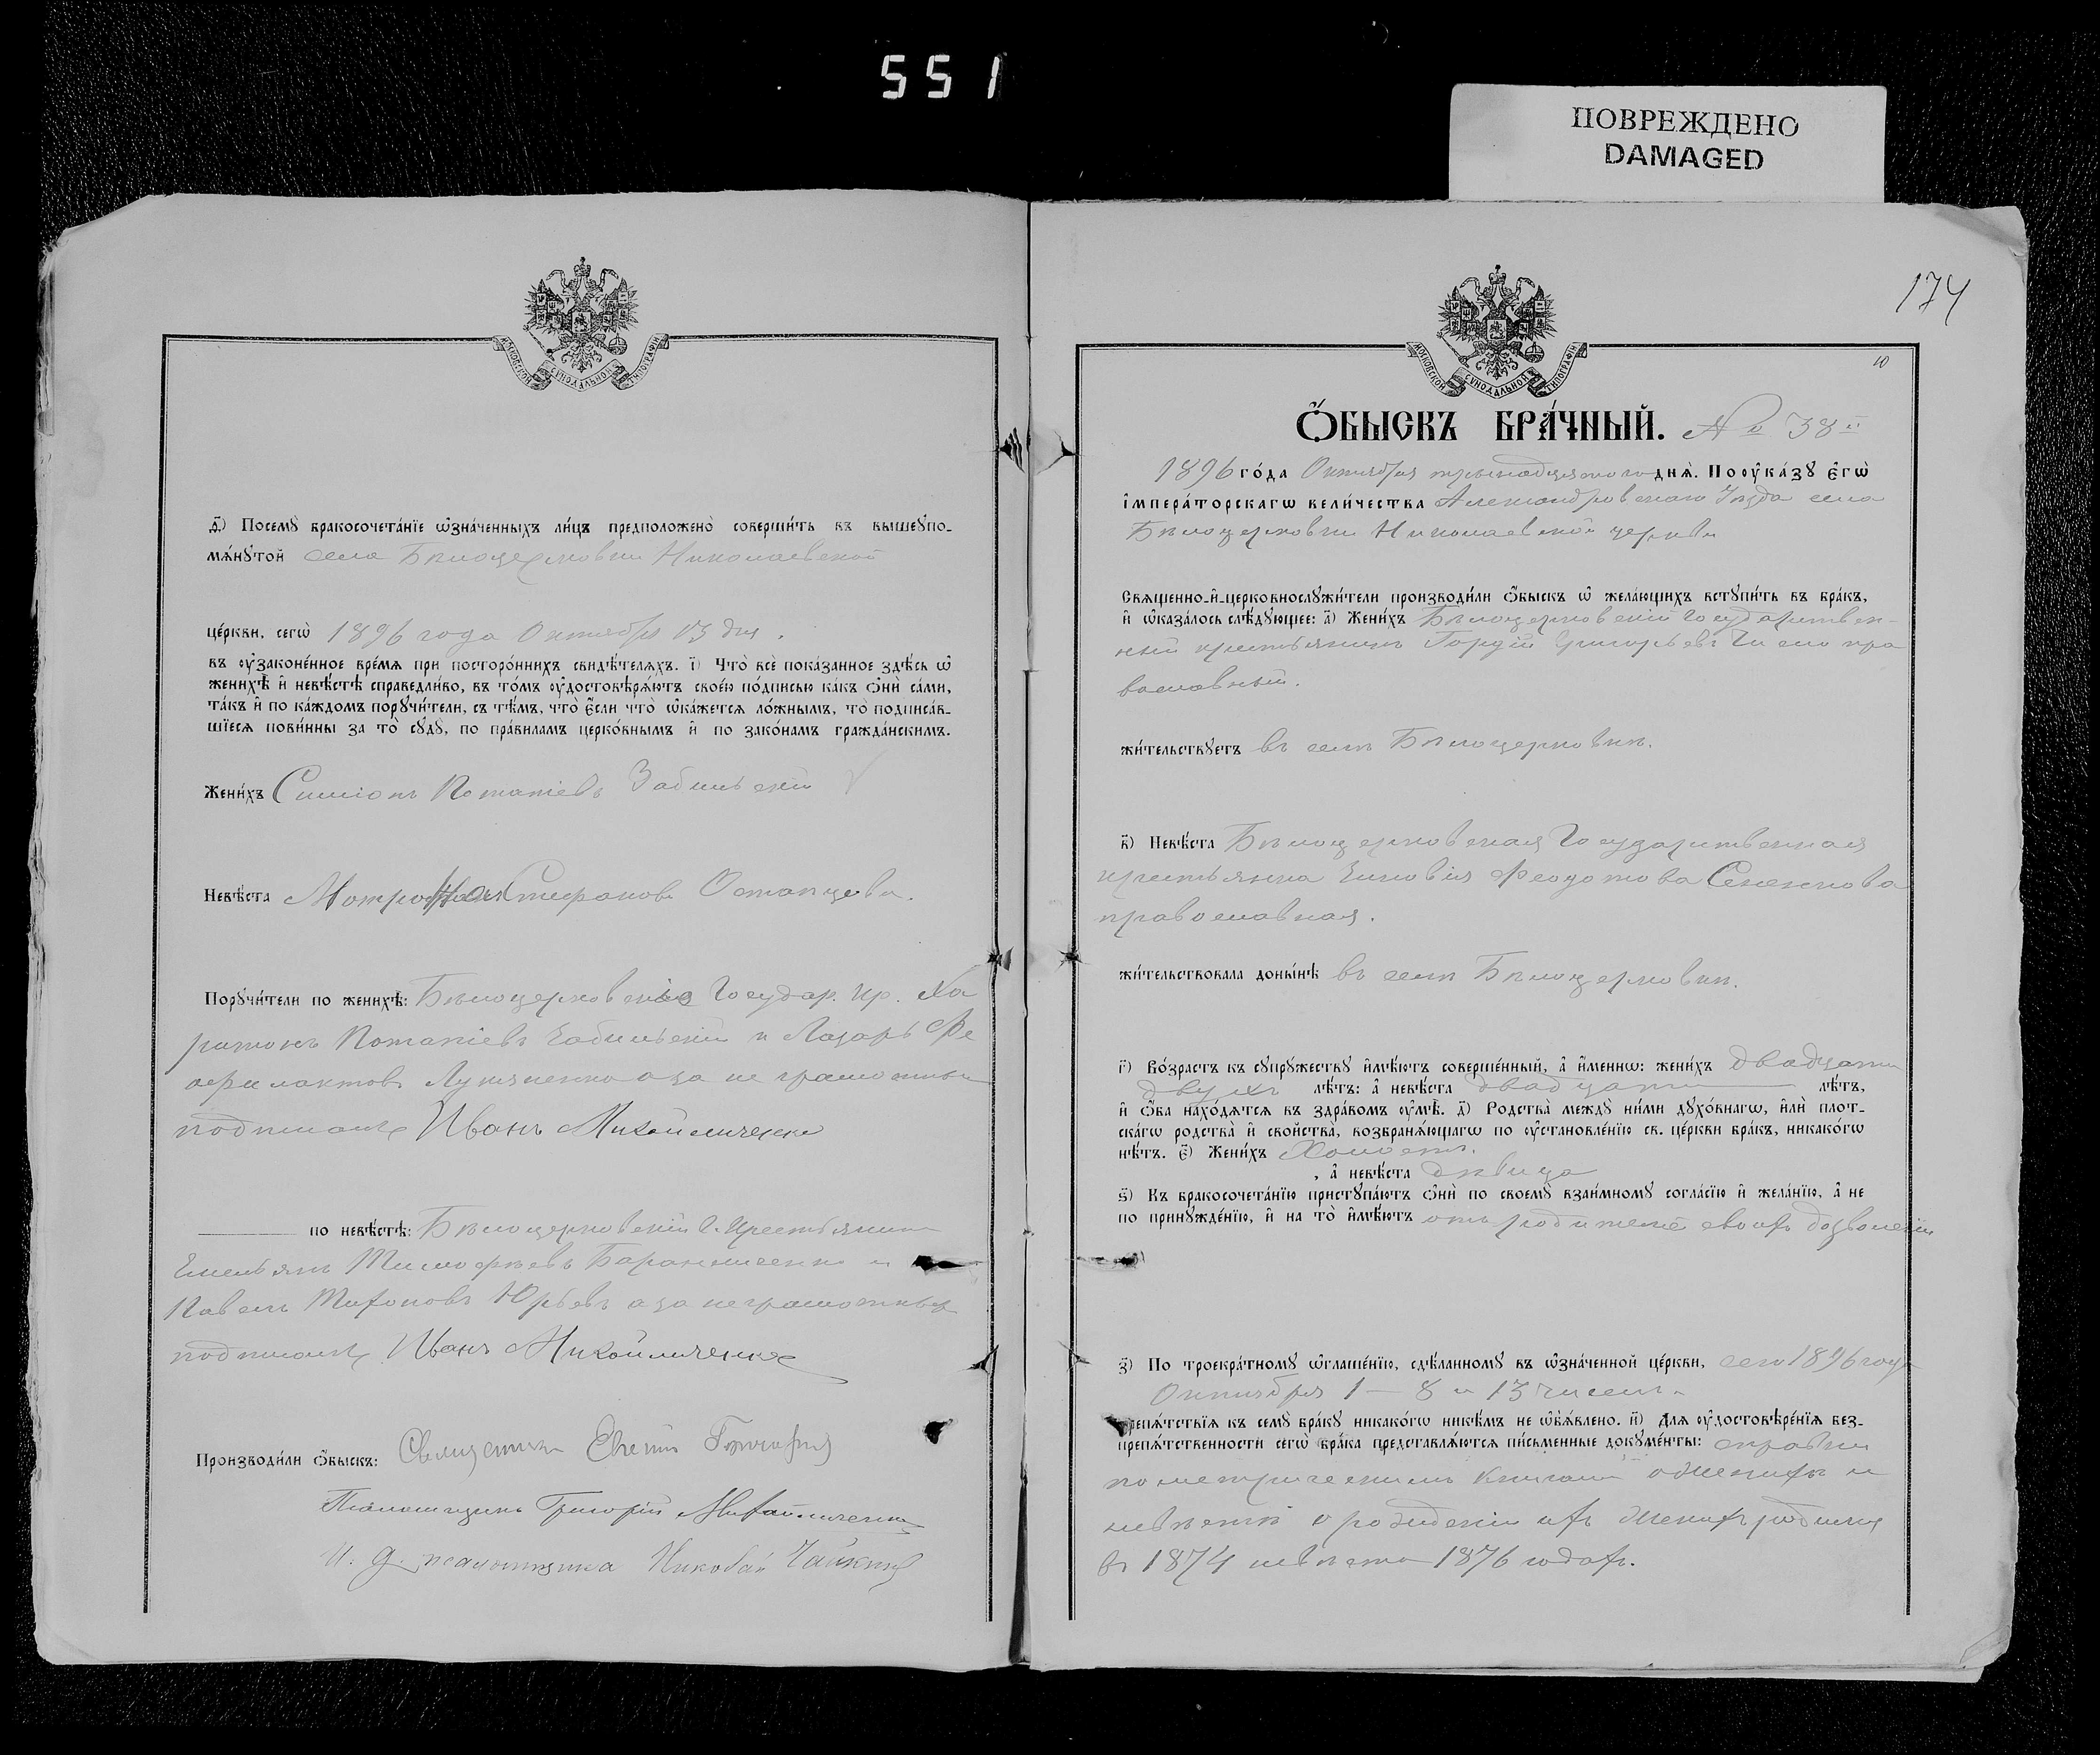 551
ПОВРЕЖДЕНО
DAMAGED
МОСКОВСКОЙ СѴНОДАЛЬНОЙ ТИПОГРАФІИ
д҃) Посемꙋ̀ бракосочета́нїе ѡ҆зна́ченныхъ ли́цъ предположено̀ соверши́ть въ вышеꙋпо-
мѧ́нꙋтой села Бѣлоцерковки Николаевской
це́ркви, сегѡ̀ 1896 года Октября 13 дня.
въ ᲂу҆законе́нное вре́мѧ при посторо́ннихъ свидѣ́телѧхъ. і҃) Что̀ всѐ пока́занное здѣ́сь ѡ҆
женихѣ̀ и҆ невѣ́стѣ справедли́во, въ то́мъ ᲂу҆достовѣрѧ́ютъ свое́ю по́дписью ка́къ ѻ҆нѝ са́ми,
та́къ и҆ по ка́ждомъ порꙋчи́тели, съ тѣ́мъ, что̀ є҆́сли что̀ ѡ҆ка́жетсѧ ло́жнымъ, то̀ подписа́в-
шїесѧ пови́нны за то̀ сꙋдꙋ̀, по пра́виламъ церко́внымъ и҆ по зако́намъ гражда́нскимъ.
Жени́хъ Симіонъ Потапіевъ Забильскій
Невѣ́ста Мотрона Стефанова Остапцева.
Порꙋчи́тели по женихѣ̀: Бѣлоцерковскіе Государ. кр. Ха
ритонъ Потапіевъ Забильскій и Лазарь Фе
Лукяненко а за не грамотны
подписался Иванъ Михайличенко
по невѣ́стѣ: Бѣлоцерковскій Г. Крестьянинъ
Емельянъ Тимофѣевъ и
Павелъ Тихоновъ Юрьевъ а за неграмотныхъ
подписался Иванъ Михайличенко
Производи́ли ѻ҆́быскъ: Священникъ Евгеній
Псаломщикъ Григорій Михайличенко
И. д. псаломщика Николай
174
10
МОСКОВСКОЙ СѴНОДАЛЬНОЙ ТИПОГРАФІИ
Ѻ҆́БЫСКЪ БРА́ЧНЫЙ. № 38й
1896 го́да Октября тринадцатого днѧ̀. По ᲂу҆ка́зꙋ Є҆гѡ̀
і҆мпера́торскагѡ вели́чества Александровскаго Уѣзда села
Бѣлоцерковки Николаевской церкви
Свѧщенно-и҆-церковнослꙋжи́тели производи́ли ѻ҆́быскъ ѡ҆ жела́ющихъ встꙋпи́ть въ бра́къ,
и҆ ѡ҆каза́лось слѣ́дꙋющее: а҃) Жени́хъ Бѣлоцерковскій Государствен-
ный крестьянинъ Гордій Григорьевъ пра
вославный.
жи́тельствꙋетъ въ селѣ Бѣлоцерковкѣ.
в҃) Невѣ́ста Бѣлоцерковская Государственная
крестьянка Зиновія Феодотова Семенкова
православная.
жи́тельствовала доны́нѣ въ селѣ Бѣлоцерковкѣ.
г҃) Во́зрастъ къ сꙋпрꙋ́жествꙋ и҆мѣ́ютъ соверше́нный, а҆ и҆́меннѡ: жени́хъ двадцати
двухъ лѣ́тъ: а҆ невѣ́ста двадцати лѣ́тъ,
и҆ ѻ҆́ба нахо́дѧтсѧ въ здра́вомъ ᲂу҆мѣ̀. д҃) Родства̀ междꙋ̀ ни́ми дꙋхо́внагѡ, и҆лѝ пло́т-
скагѡ родства̀ и҆ сво́йства̀, возбранѧ́ющагѡ по ᲂу҆становле́нїю св. це́ркви бра́къ, никако́гѡ
нѣ́тъ. є҃) Жени́хъ Холостъ.
, а҆ невѣ́ста дѣвица
ѕ҃) Къ бракосочета́нїю пристꙋпа́ютъ ѻ҆нѝ по своемꙋ̀ взаи́мному согла́сїю и҆ жела́нїю, а҆ не
по принꙋжде́нїю, и҆ на то̀ и҆мѣ́ютъ отъ родителей своихъ дозволеніе
з҃) По троекра́тномꙋ ѡ҆глаше́нїю, сдѣ́ланномꙋ въ ѡ҆зна́ченной це́ркви, сего 1896 года
Октября 1 — 8 и 13 чиселъ
репѧ́тствїѧ къ семꙋ̀ бра́кꙋ никако́гѡ никѣ́мъ не ѡ҆б̾ѧ́влено. и҃) Длѧ ᲂу҆достовѣре́нїѧ без-
препѧ́тственности сегѡ̀ бра́ка представлѧ́ютсѧ пи́сьменные докꙋме́нты: справки
по метрическимъ книгамъ о женихѣ и
невѣстѣ о рожденіи ихъ женихъ родился
въ 1874 невѣста 1876 годахъ.